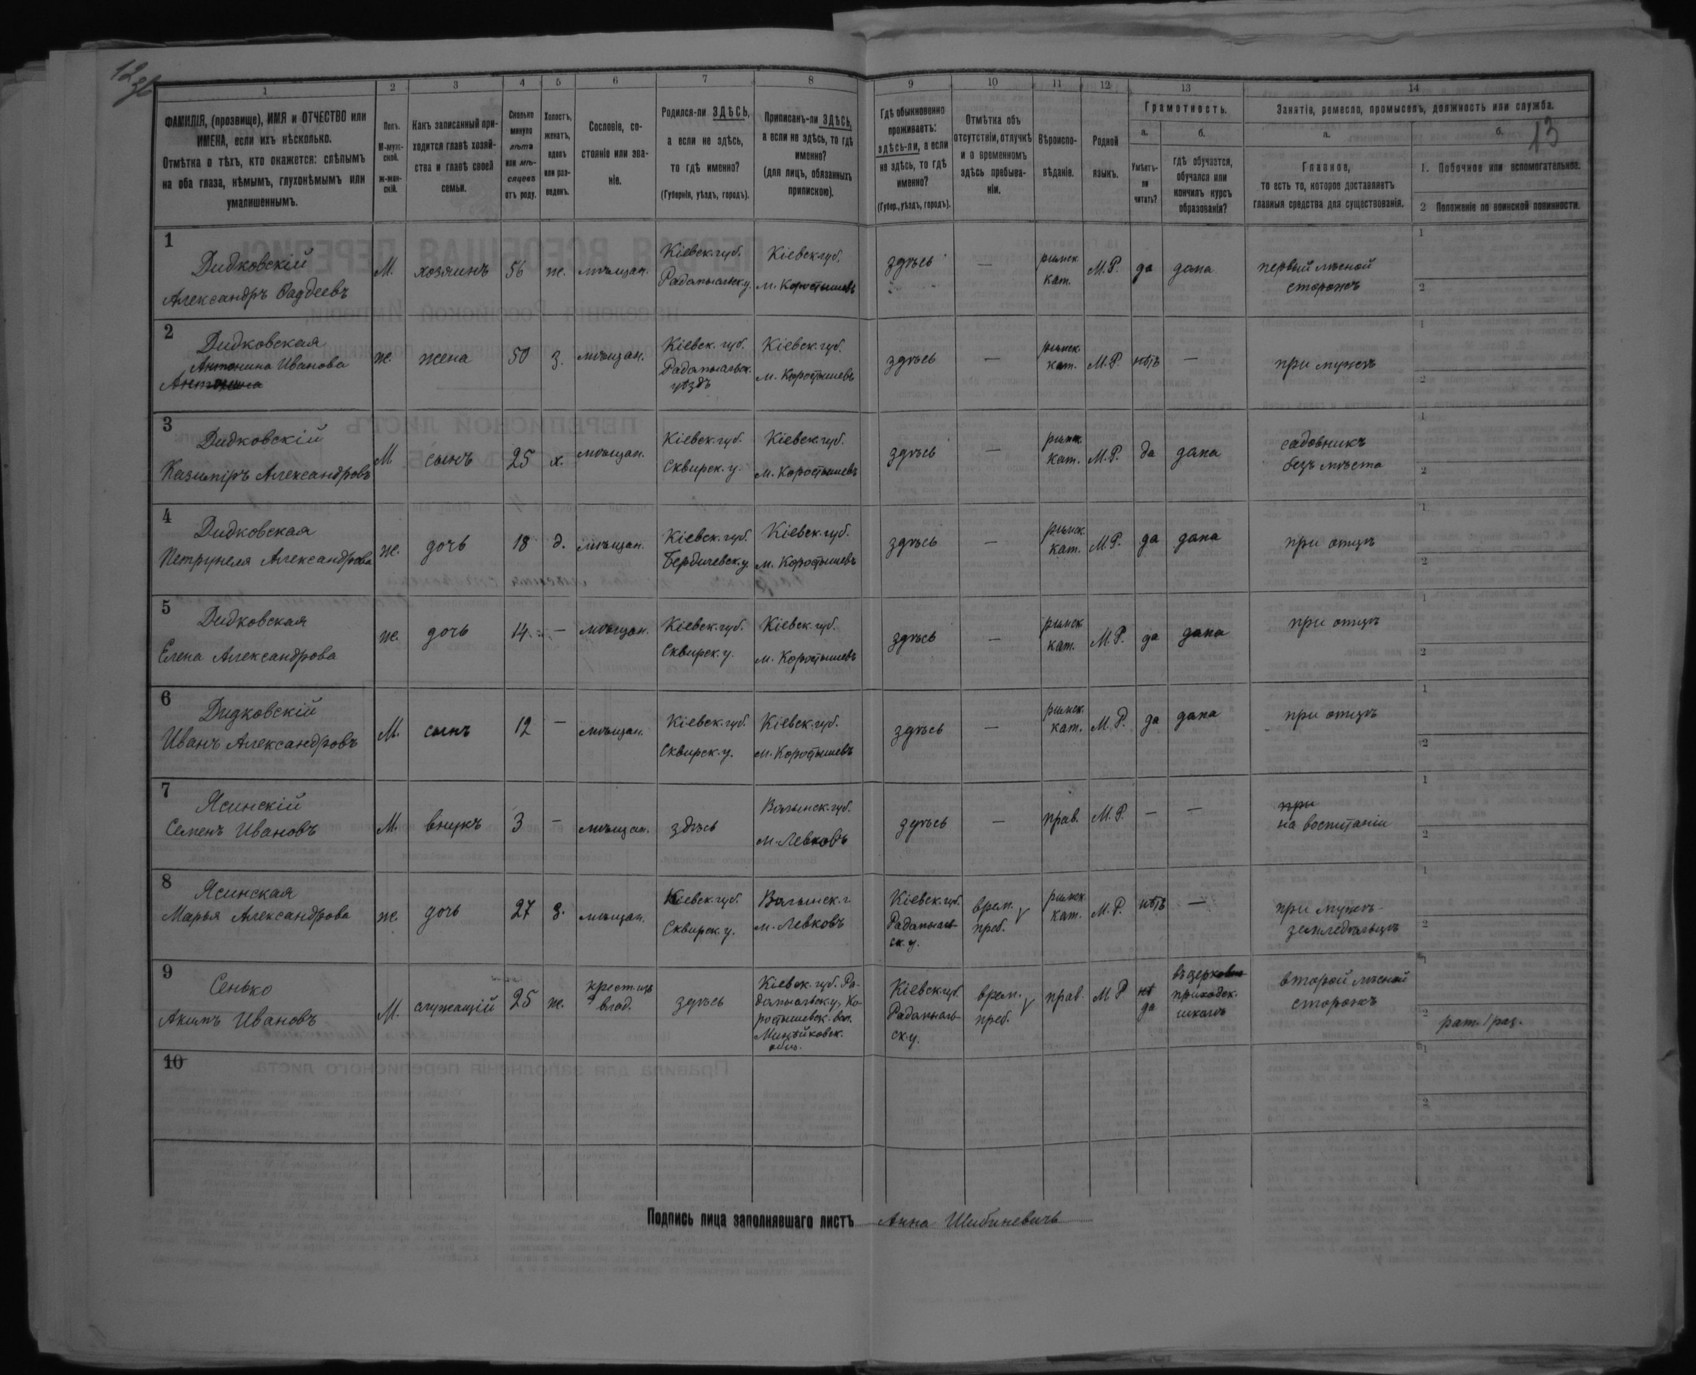 12
1 2 3 4 5 6 7 8 9 10 11 12 13 14
ФАМИЛІЯ, (прозвище), ИМЯ и ОТЧЕСТВО или
ИМЕНА, если ихъ нѣсколько.
Отмѣтка о тѣхъ, кто окажется: слѣпымъ
на оба глаза, нѣмымъ, глухонѣмымъ или
умалишеннымъ.
Полъ.
М-мужской.
ж-женскій.
Какъ записанный при-
ходится главѣ хозяй-
ства и главѣ своей
семьи.
Сколько
минуло
лѣтъ
или мѣ-
сяцевъ
отъ роду.
Холостъ,
женатъ,
вдовъ
или раз-
веденъ.
Сословіе, со-
стояніе или зва-
ніе.
Родился-ли ЗДѢСЬ,
а если не здѣсь,
то гдѣ именно?
(Губернія, уѣздъ, городъ).
Приписанъ-ли ЗДѢСЬ,
а если не здѣсь, то гдѣ
именно?
(для лицъ, обязанныхъ
припискою).
Гдѣ обыкновенно
проживаетъ:
здѣсь-ли, а если
не здѣсь, то гдѣ
именно?
(Губер., уѣздъ, городъ).
Отмѣтка объ
отсутствіи, отлучкѣ
и о временномъ
здѣсь пребыва-
ніи.
Вѣроиспо-
вѣданіе.
Родной
языкъ.
Грамотность.
а.
Умѣетъ-
ли
читать?
б.
гдѣ обучается,
обучался или
кончилъ курсъ
образованія?
Занятіе, ремесло, промыселъ, должность или служба.
а.
Главное,
то есть то, которое доставляетъ
главныя средства для существованія.
б.
13
1. Побочное или вспомогательное.
2 Положеніе по воинской повинности.
1
Дидковскій
Александръ Фаддеевъ
М. хозяинъ 56 ж. мѣщан.
Кіевск. губ.
Радомысльск. у.
Кіевск. губ.
м. Коростышевъ
здѣсь —
римск.
кат.
М.Р. да дома
первый лѣсной
сторожъ
1
2
2
Дидковская
Антонина Иванова
ж. жена 50 з. мѣщан.
Кіевск. губ.
Радомысльск.
уѣздъ
Кіевск. губ.
м. Коростышевъ
здѣсь —
римск.
кат.
М.Р. нѣтъ —
при мужѣ
1
2
3
Дидковскій
Казиміръ Александровъ
М сынъ 25 х. мѣщан.
Кіевск. губ.
Сквирск. у.
Кіевск. губ.
м. Коростышевъ
здѣсь —
римск.
кат.
М.Р. да дома
садовникъ
безъ мѣста
1
2
4
Дидковская
Петрунеля Александрова
ж. дочь 18 д. мѣщан.
Кіевск. губ.
Бердичевск. у.
Кіевск. губ.
м. Коростышевъ
здѣсь —
римск.
кат.
М.Р. да дома
при отцѣ
1
2
5
Дидковская
Елена Александрова
ж. дочь 14 — мѣщан.
Кіевск. губ.
Сквирск. у.
Кіевск. губ.
м. Коростышевъ
здѣсь —
римск.
кат.
М.Р. да дома
при отцѣ
1
2
6
Дидковскій
Иванъ Александровъ
М. сынъ 12 — мѣщан.
Кіевск. губ.
Сквирск. у.
Кіевск. губ.
м. Коростышевъ
здѣсь —
римск.
кат.
М.Р. да дома
при отцѣ
1
2
7
Ясинскій
Семенъ Ивановъ
М. внукъ 3 — мѣщан.
здѣсь
Волынск. губ.
м. Левковъ
здѣсь — прав. М.Р. — —
при
на воспитаніи
1
2
8
Ясинская
Марья Александрова
ж. дочь 27 з. мѣщан.
Кіевск. губ.
Сквирск. у.
Волынск. г.
м. Левковъ
Кіевск. губ.
Радомысль-
ск. у.
врем.
преб.
римск.
кат.
М.Р. нѣтъ —
при мужѣ-
земледѣльцѣ
1
2
9
Сенько
Акимъ Ивановъ
М. служащій 25 ж.
здѣсь
Кіевск. губ. Ра-
домысльск. у. Ко-
ростышевск. вол.
Кіевск. губ.
Радомысль-
ск. у.
врем.
преб.
прав. М Р
да
приходск.
школѣ
второй лѣсной
сторожъ
1
2
рат. 1 раз.
10
1
2
Подпись лица заполнявшаго листъ Анна Шибиневичъ